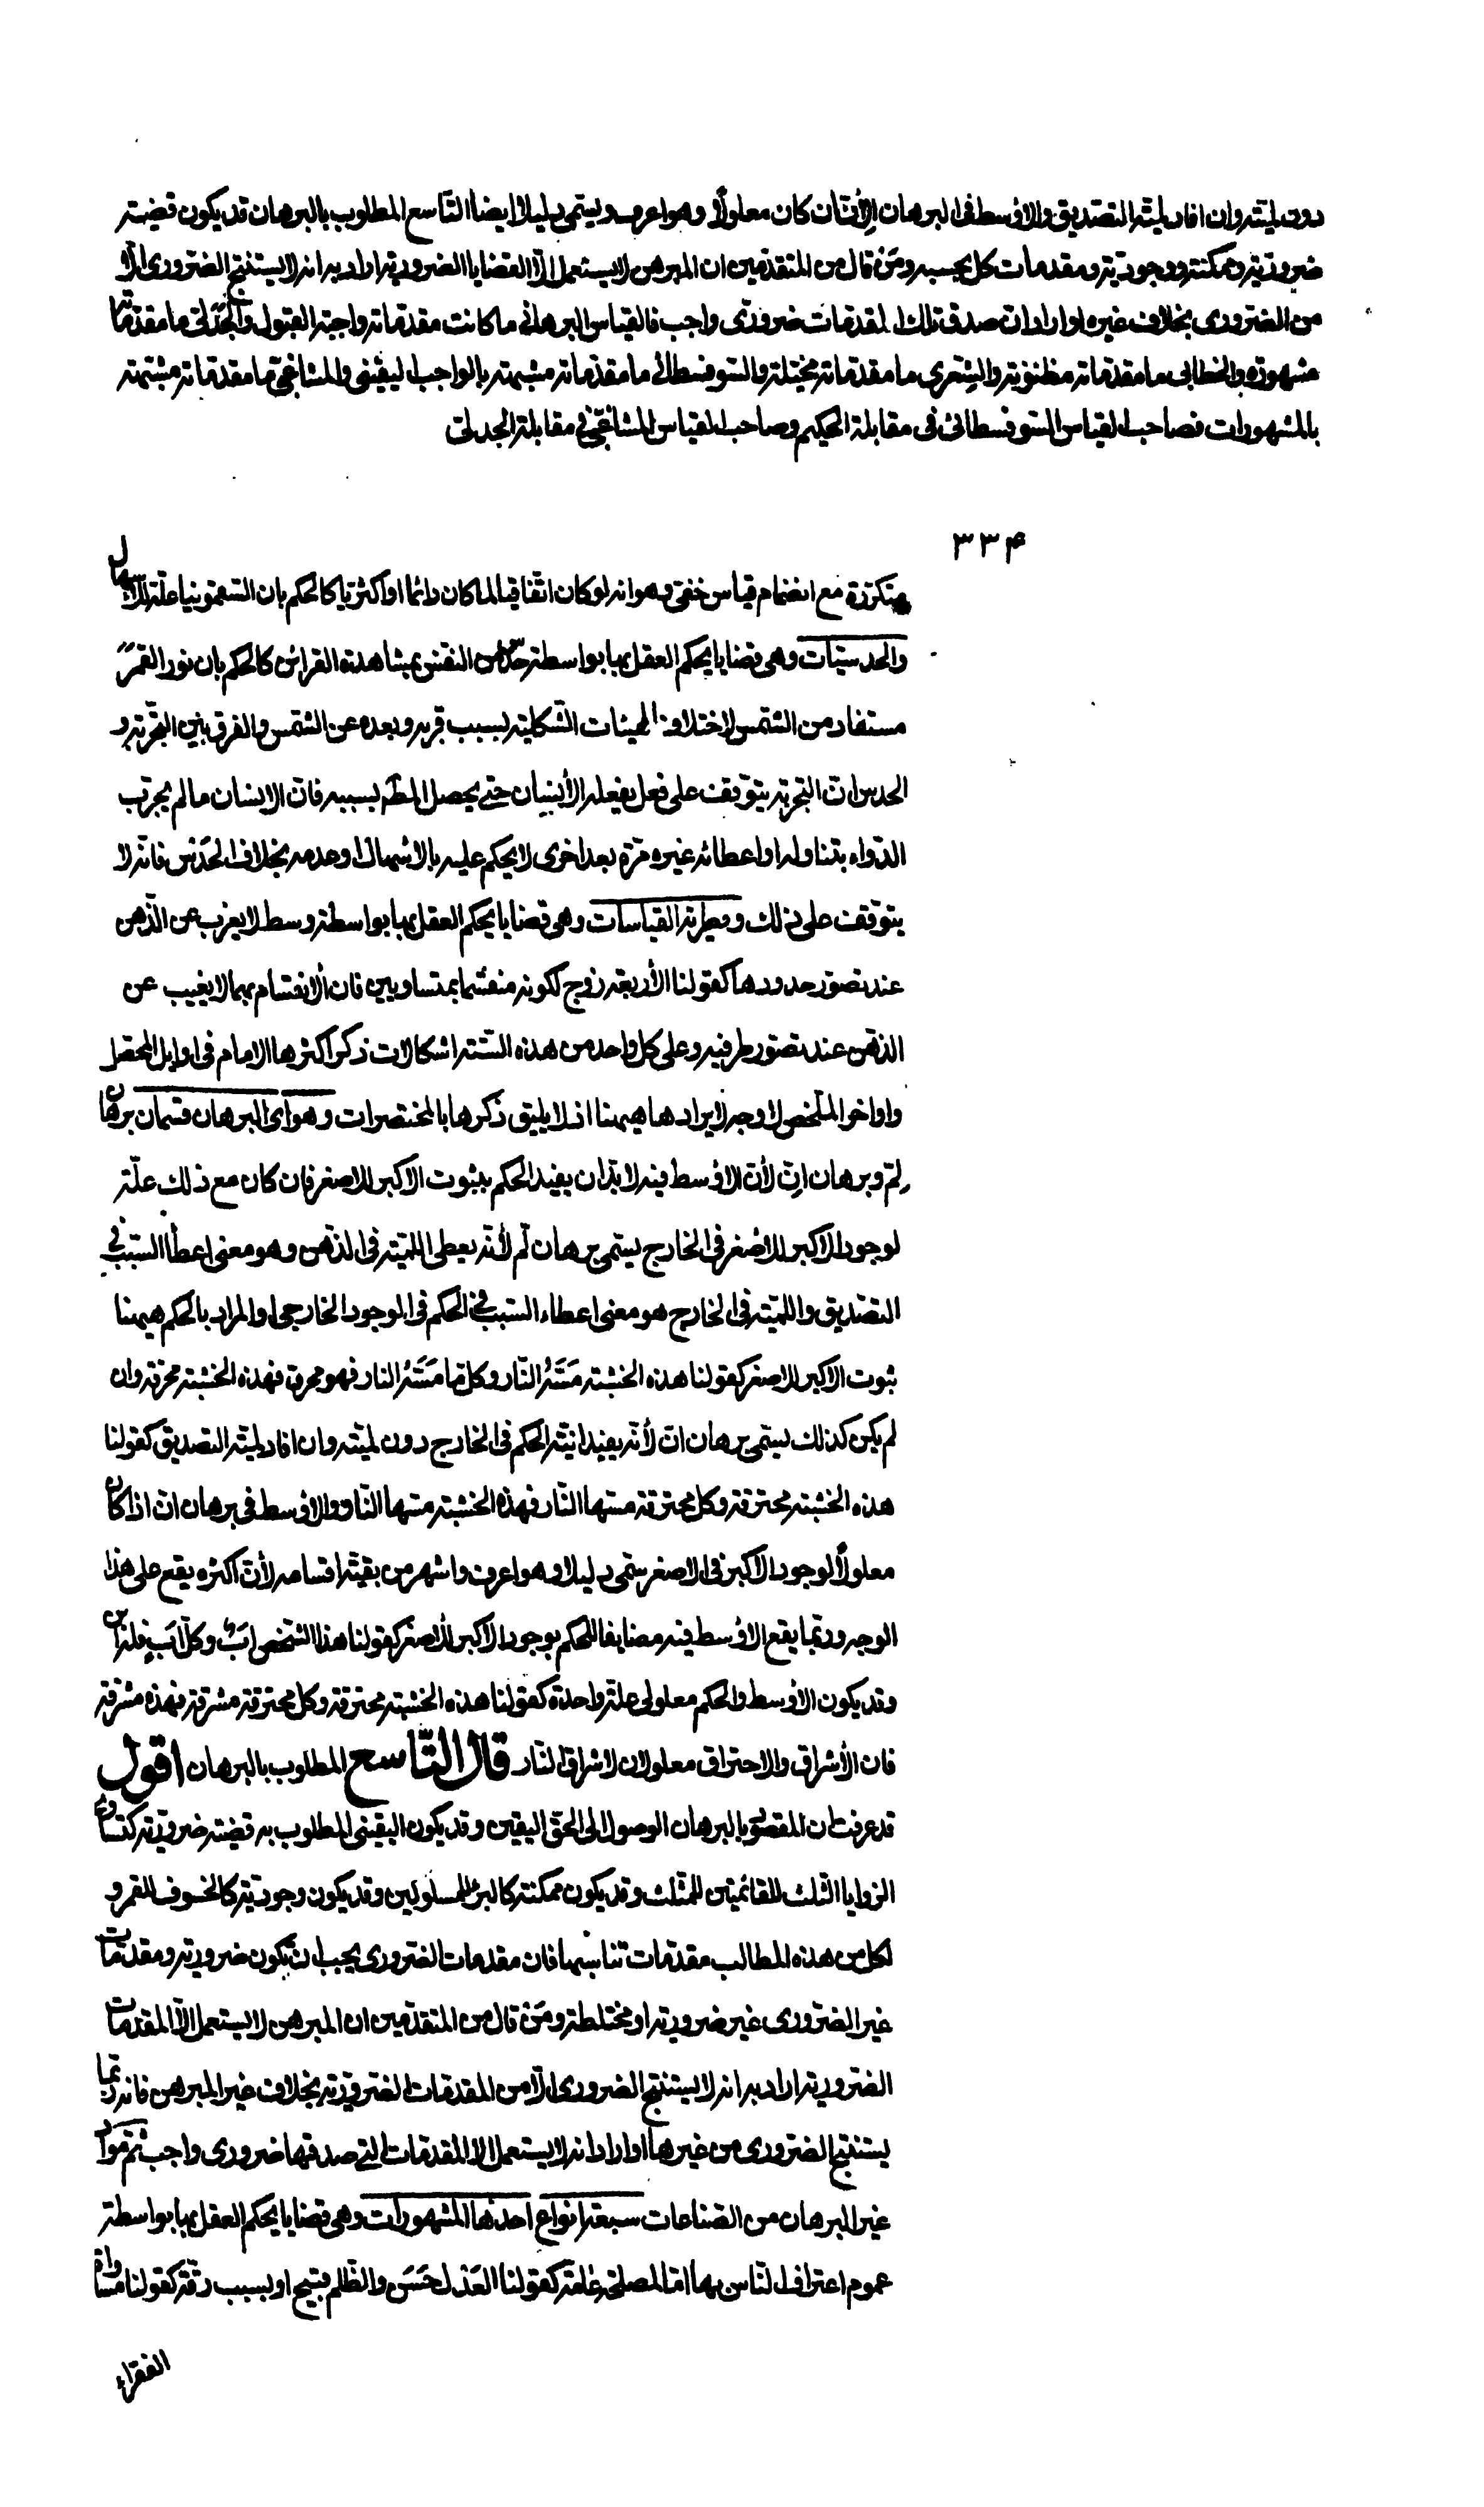 دون لميته وان افاد لمية التصديق والاوسط فى البرهان الإنّى ان كان معلولاً وهو اعرف ويسمى دليلا ايضا التاسع المطلوب بالبرهان قد يكون قضية
ضرورية وممكنة ووجودية ومقدمات كل بحسبه ومَنْ قال من المتقدمين ان المبرهن لا يستعمل الّا القضايا الضرورية اراد به انه لا يستنتج الضرورى الّا
من الضرورى بخلاف غيره او اراد ان صدق تلك المقدمات ضرورى واجب فالقياس البرهانى ما كانت مقدماته واجبة القبول والجدلى ما مقدماته
مشهورة والخطابى ما مقدماته مظنونة والشعرى ما مقدماته مخيلة والسوفسطائى ما مقدماته مشبهة بالواجب اليقينى والمشاغبى ما مقدماته مشبهة
بالمشهورات فصاحب القياس السوفسطائى فى مقابلة الحكيم وصاحب القياس المشاغبى فى مقابلة الجدلى
٣٣۴
متكررة مع انضمام قياس خفى وهو انه لو كان اتفاقيا لما كان دائما او اكثريا كالحكم بان السقمونيا علة للاسهال
والحدسيّات وهى قضايا يحكم العقل بها بواسطة حدس من النفس بمشاهدة القرائن كالحكم بان نور القمر
مستفاد من الشمس لاختلاف الهيئات الشكلية بسبب قربه وبعده عن الشمس والفرق بين التجربة و
الحدس ان التجربة يتوقف على فعل يفعله الأنسان حتى يحصل المط بسببه فان الانسان ما لم يجرب
الدواء بتناوله او اعطائه غيره مرة بعد اخرى لا يحكم عليه بالاسهال او عدمه بخلاف الحدس فانه لا
يتوقف على ذلك وفطرية القياسات وهى قضايا يحكم العقل بها بواسطة وسط لا يعزب عن الذهن
عند تصور حدودها كقولنا الأربعة زوج لكونه منقسما بمتساويين فان الأنقسام بهما لا يغيب عن
الذهن عند تصور طرفيه وعلى كل واحد من هذه الستة اشكالات ذكر اكثرها الامام فى اوايل المحصل
واواخر الملخص لا وجه لايرادها هيهنا اذ لا يليق ذكرها بالمختصرات وهو اى البرهان قسمان برهان
لِمّ وبرهان انِّ لأن الاوسط فيه لا بد ان يفيد الحكم بثبوت الاكبر للاصغر فان كان مع ذلك علّة
لوجود الاكبر للأصغر فى الخارج يسمى برهان لم لأنه يعطى اللمية فى الذهن وهو معنى اعطاء السبب فى
التصديق واللمية فى الخارج هو معنى اعطاء السبب فى الحكم فى الوجود الخارجى والمراد بالحكم هيهنا
ثبوت الاكبر للاصغر كقولنا هذه الخشبة مَسَّتْه النّار وكل ما مَسَّتْه النار فهو محرق فهذه الخشبة محرقة وان
لم يكن كذلك يسمى برهان ان لأنّه يفيد انيّة الحكم فى الخارج دون لميته وان افاد لمية التصديق كقولنا
هذه الخشبة محترقة وكل محترقة مستها النّار فهذه الخشبة مستها النّار والاوسط فى برهان ان اذا كان
معلولاً لوجود الاكبر فى الاصغر سمى دليلا وهو اعرف واشهر من بقية اقسامه لأن اكثره يقع على هذا
الوجه وربما يقع الاوسط فيه مضايفا للحكم بوجود الاكبر للأصغر كقولنا هذا الشخص ابٌ وكل ابٍ فله ابن
وقد يكون الأوسط والحكم معلولى علة واحدة كقولنا هذه الخشبة محترقة وكل محترقة مشرقة فهذه مشرقة
فان الأشراق والاحتراق معلولان لاشراق النّار قال التّاسع المطلوب بالبرهان اقول
قد عرفت ان المقصود بالبرهان الوصول الى الحق اليقين وقد يكون اليقينى المطلوب به قضية ضرورية كتساوى
الزوايا الثلث للقائمتين للمثلث وقد يكون ممكنة كالبرْء للمسلولين وقد يكون وجودية كالخسوف للقمر و
لكل من هذه المطالب مقدمات تناسبها فان مقدمات الضرورى يجب ان تكون ضرورية ومقدمات
غير الضرورى غير ضرورية او مختلطة ومَنْ قال من المتقدّمين ان المبرهن لا يستعمل الّا المقدمات
الضرورية اراد به انه لا يستنتج الضرورى الّا من المقدمات الضرورية بخلاف غير المبرهن فانه ربما
يستنتج الضرورى من غيرها او اراد انه لا يستعمل الا المقدمات التى صدقها ضرورى واجب ثم مواد
غير البرهان من الصناعات سبعة انواع احدها المشهورات وهى قضايا يحكم العقل بها بواسطة
عموم اعتراف الناس بها امّا لمصلحة عامّة كقولنا العَدْل حَسَن والظلم قبيح او بسبب رقّة كقولنا مساواة
الفقراء